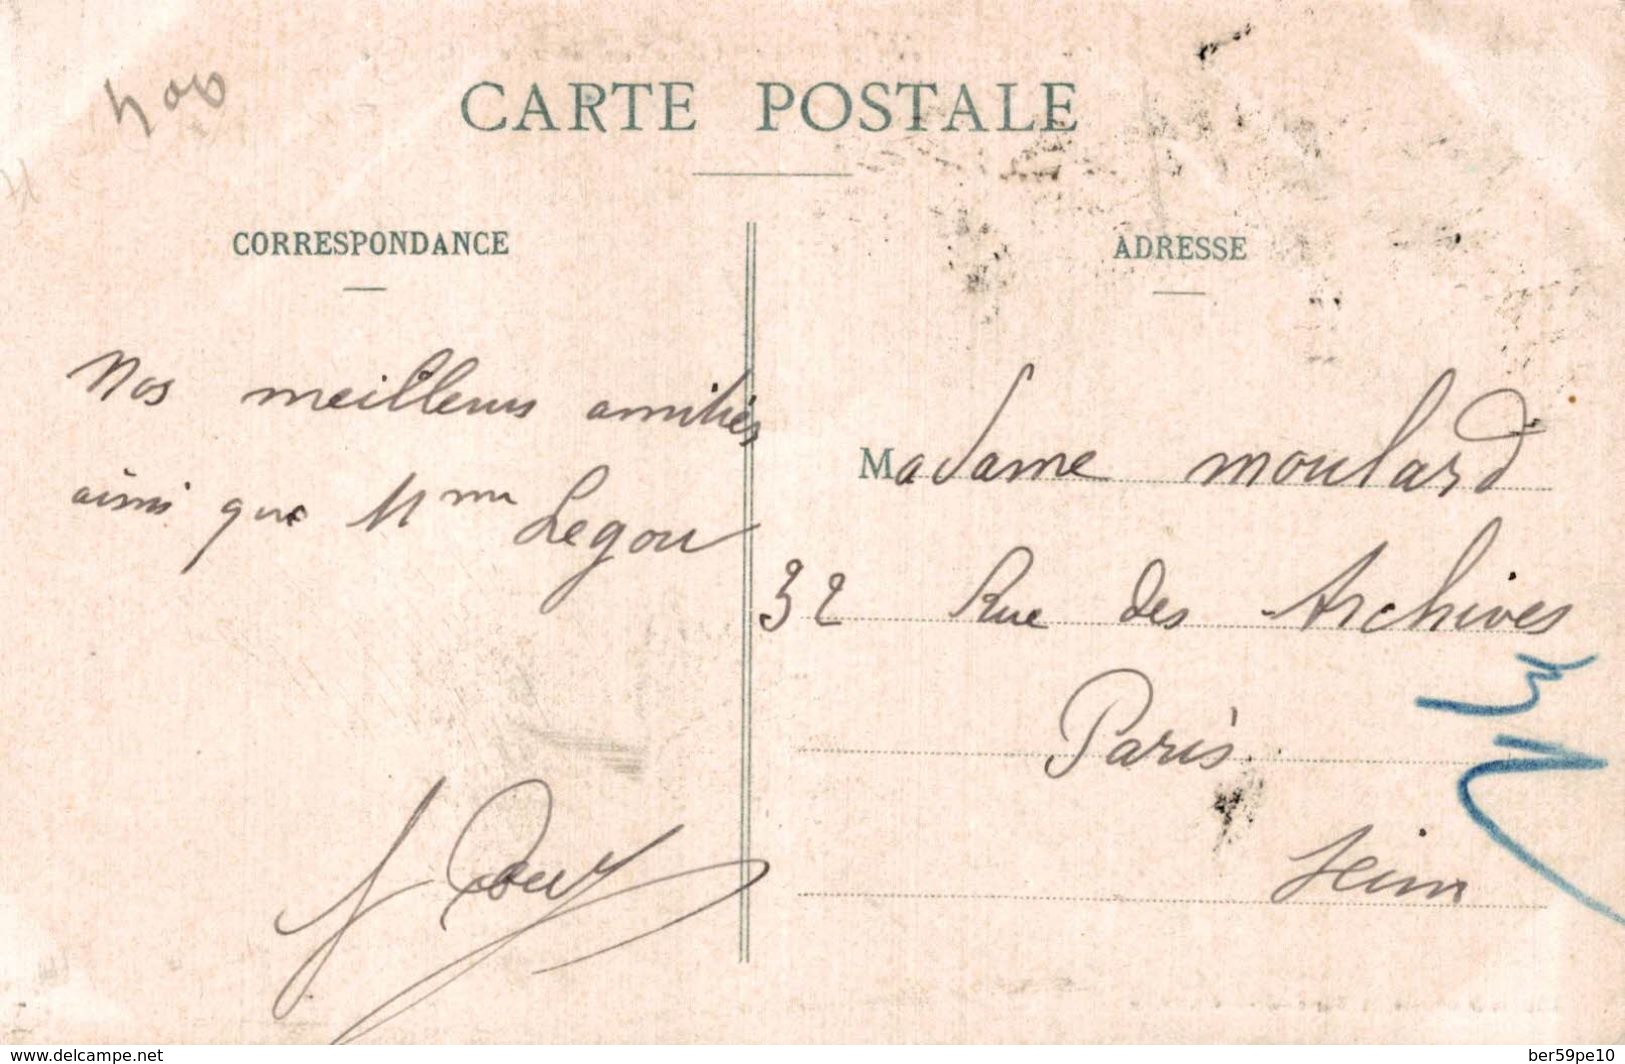 400
CARTE POSTALE
CORRESPONDANCE
ADRESSE
Nos meilleurs amitiés
ainsi que Mme Legou
Madame Moulard
32 Rue des Archives
Paris
Seine
www.delcampe.net
ber59pe10